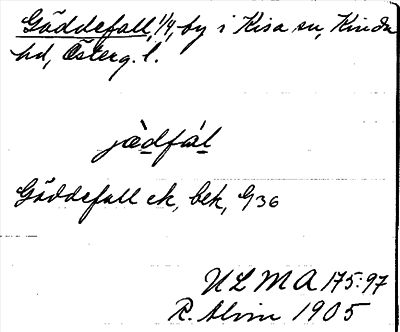 Göddefall, 1/4, by i Kisa sn, Kinda
hd, Österg. l.
jæ̀dfàl
Göddefall ek, bek, G36
ULMA 175:97
R. Alvin 1905